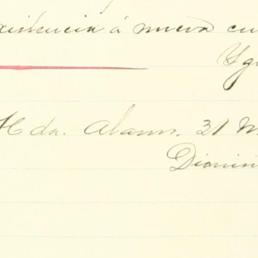 existencia á nueva cu
Yg
Hda. Alamo. 31 M
Dioni